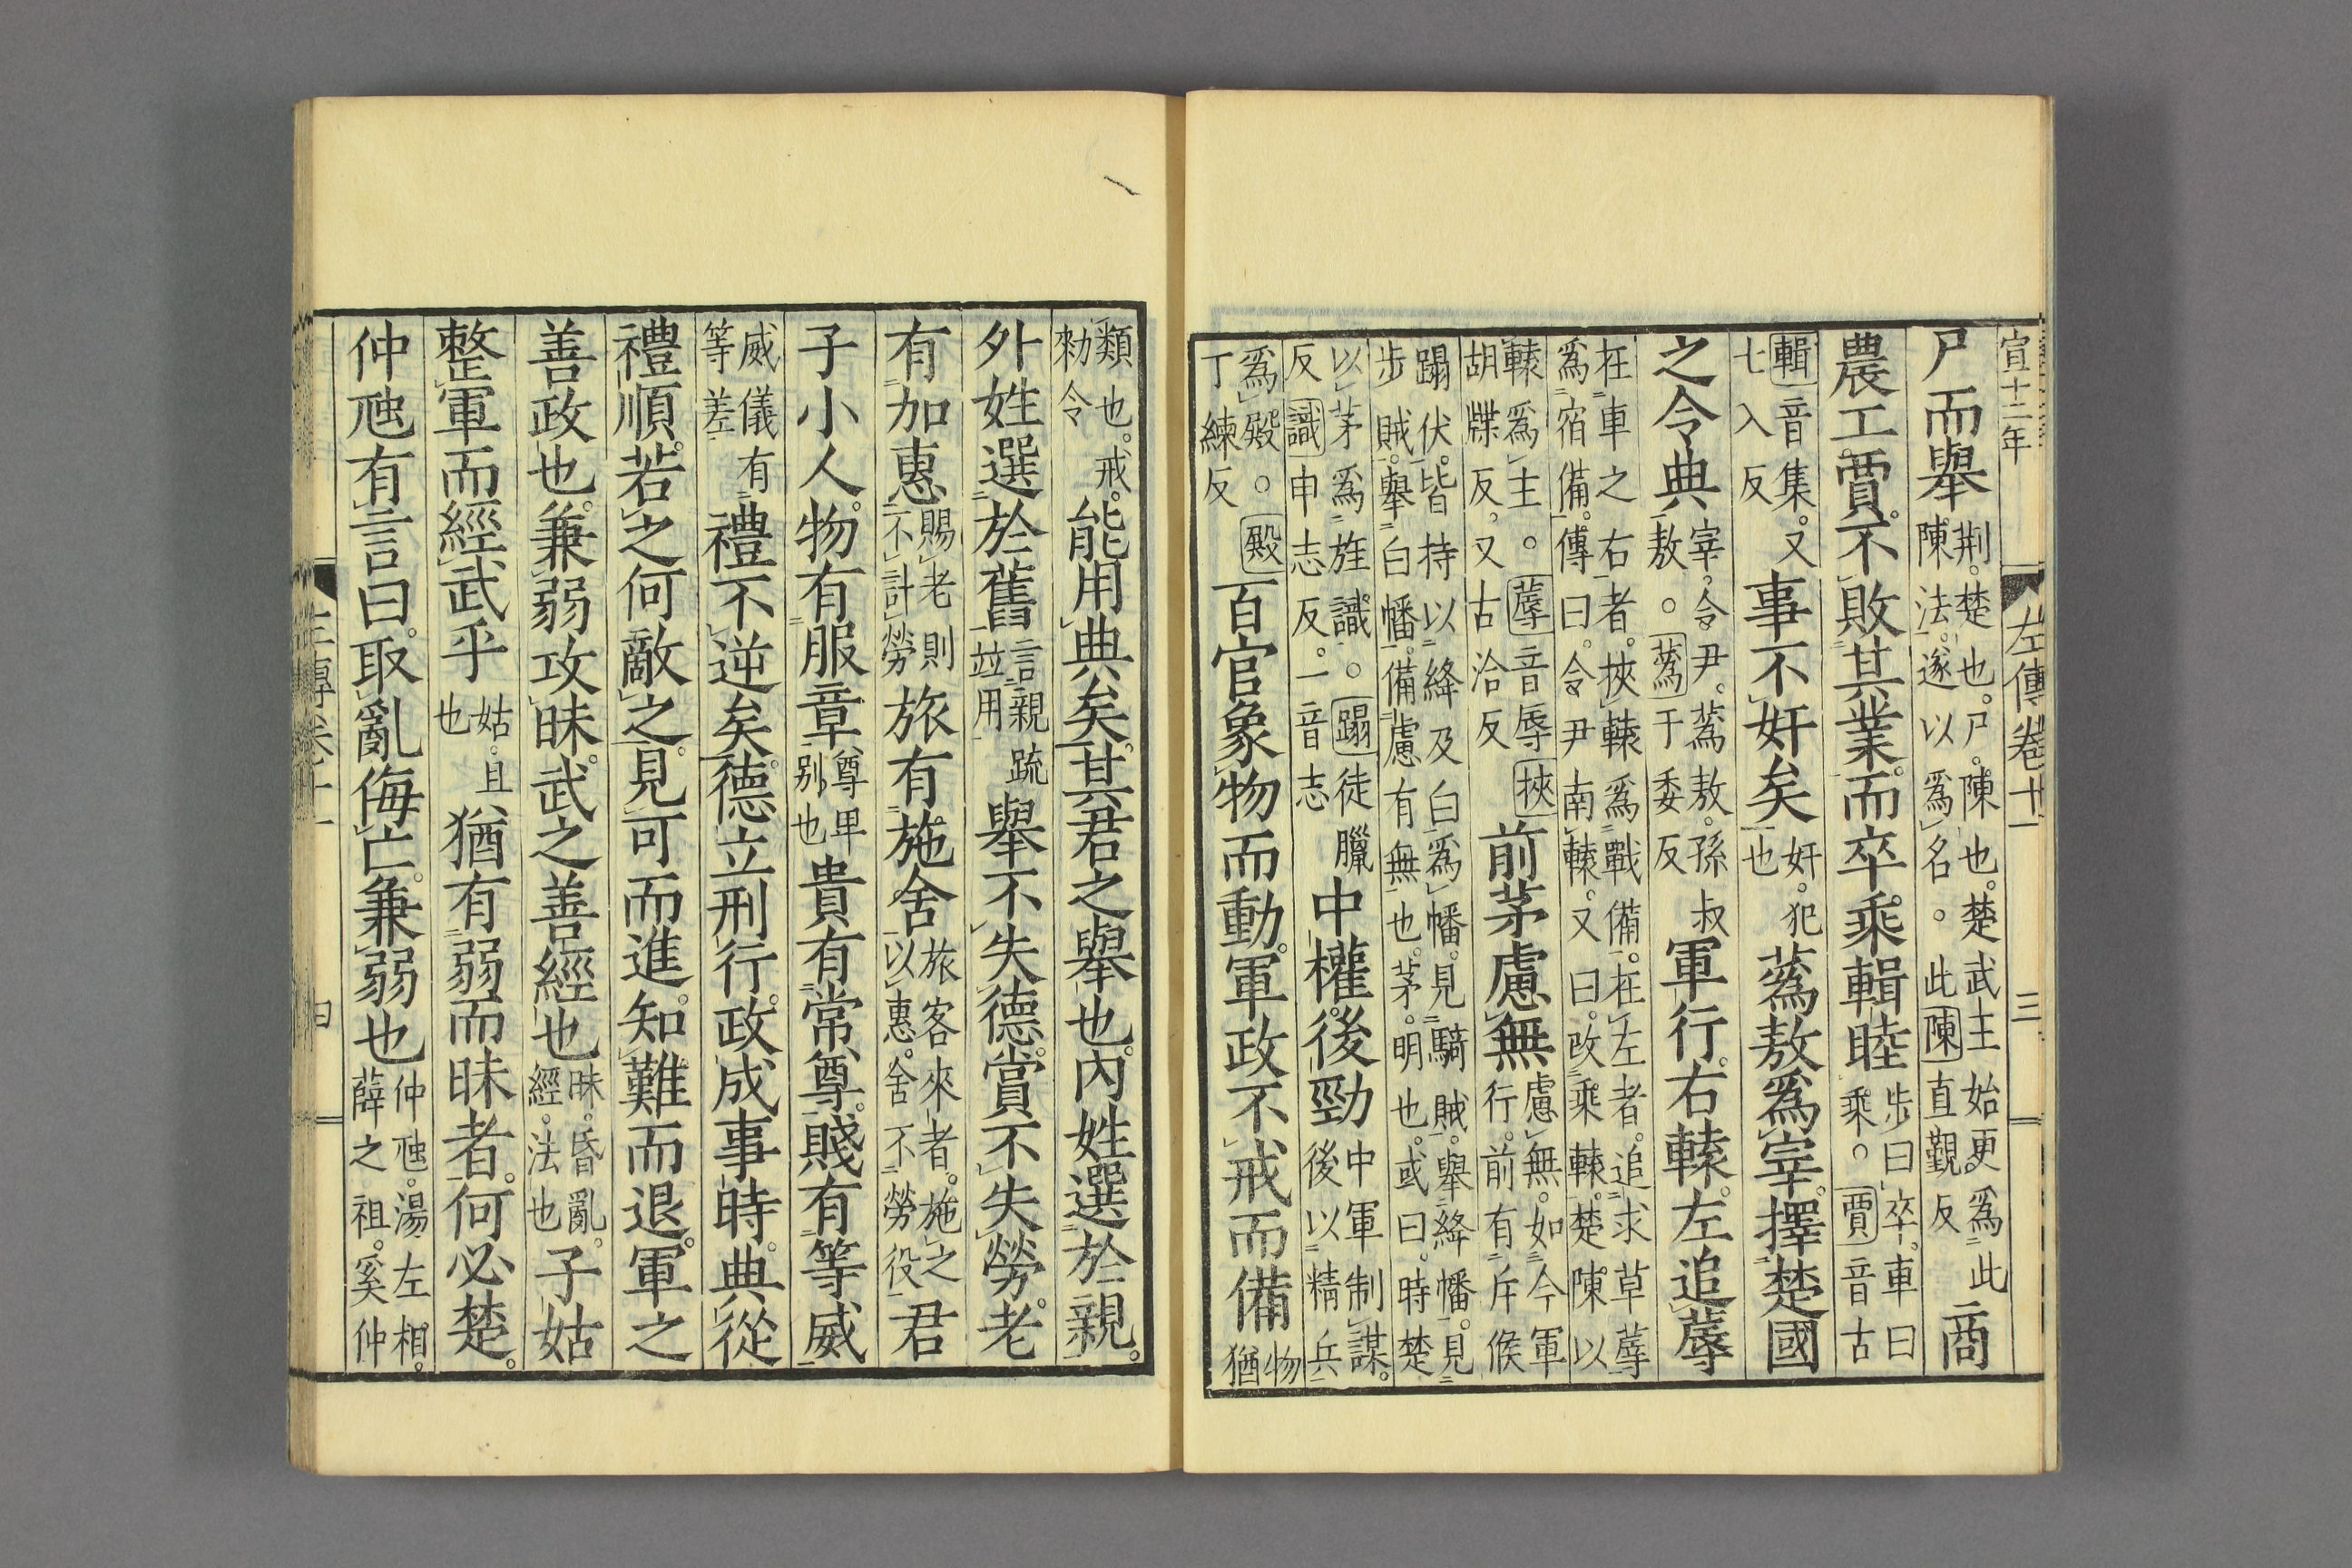 宣十二年 左傳卷十一 三
尸而舉荆。楚也。尸。陳也。楚武王始更。爲此陳法。遂以爲名。此陳直覲反商
農工賈。不敗其業。而卒乘輯睦步曰卒。車曰乘。賈音古
輯音集。又七入反事不奸矣奸。犯也蒍敖爲宰。擇楚國
之令典宰。令尹。蒍敖。孫叔敖。蒍于委反軍行。右轅。左追蓐
在車之右者。挾轅爲戰備。在左者。追求草蓐爲宿備。傳曰。令尹南轅。又曰。改乘轅。楚陳以
轅爲主。蓐音辱挾胡牒反。又古洽反前茅慮無慮無。如今軍行。前有斥候
蹋伏。皆持以絳及白爲幡。見騎賊。舉絳幡。見步賊。舉白幡。備慮有無也。茅。明也。或曰。時楚
以茅爲旌識。蹋徒臘反識申志反。一音志中權。後勁中軍制謀。後以精兵
爲殿。殿丁練反百官象物而動。軍政不戒而備物猶
類也。戒。勑令能用典矣。其君之舉也。內姓選於親。
外姓選於舊言親疏竝用舉不失德。賞不失勞。老
有加惠賜老則不計勞旅有施舍旅客來者。施之以惠。舍不勞役君
子小人。物有服章尊卑別也貴有常尊。賤有等威
威儀有等差禮不逆矣。德立刑行。政成事時。典從
禮順。若之何敵之。見可而進。知難而退。軍之
善政也。兼弱攻昧。武之善經也昧。昏亂。經。法也子姑
整軍而經武乎姑。且也猶有弱而昧者。何必楚。
仲虺有言曰。取亂侮亡。兼弱也仲虺。湯左相。薛之祖。奚仲